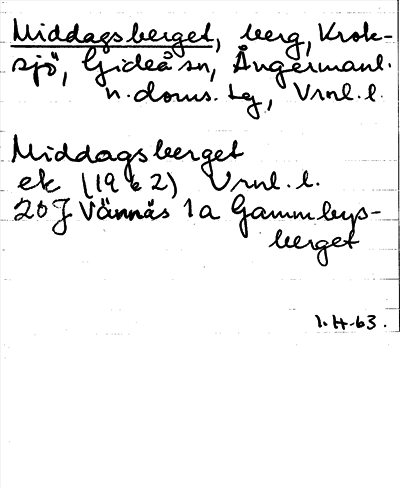 Middagsberget, berg, Krok-
sjö, Gideå sn, Ångermanl.
n. doms. tg, Vrnl. l.
Middagsberget
ek (1962) Vrnl. l.
20 J Vännäs 1a Gammbys-
berget
I. H-63.